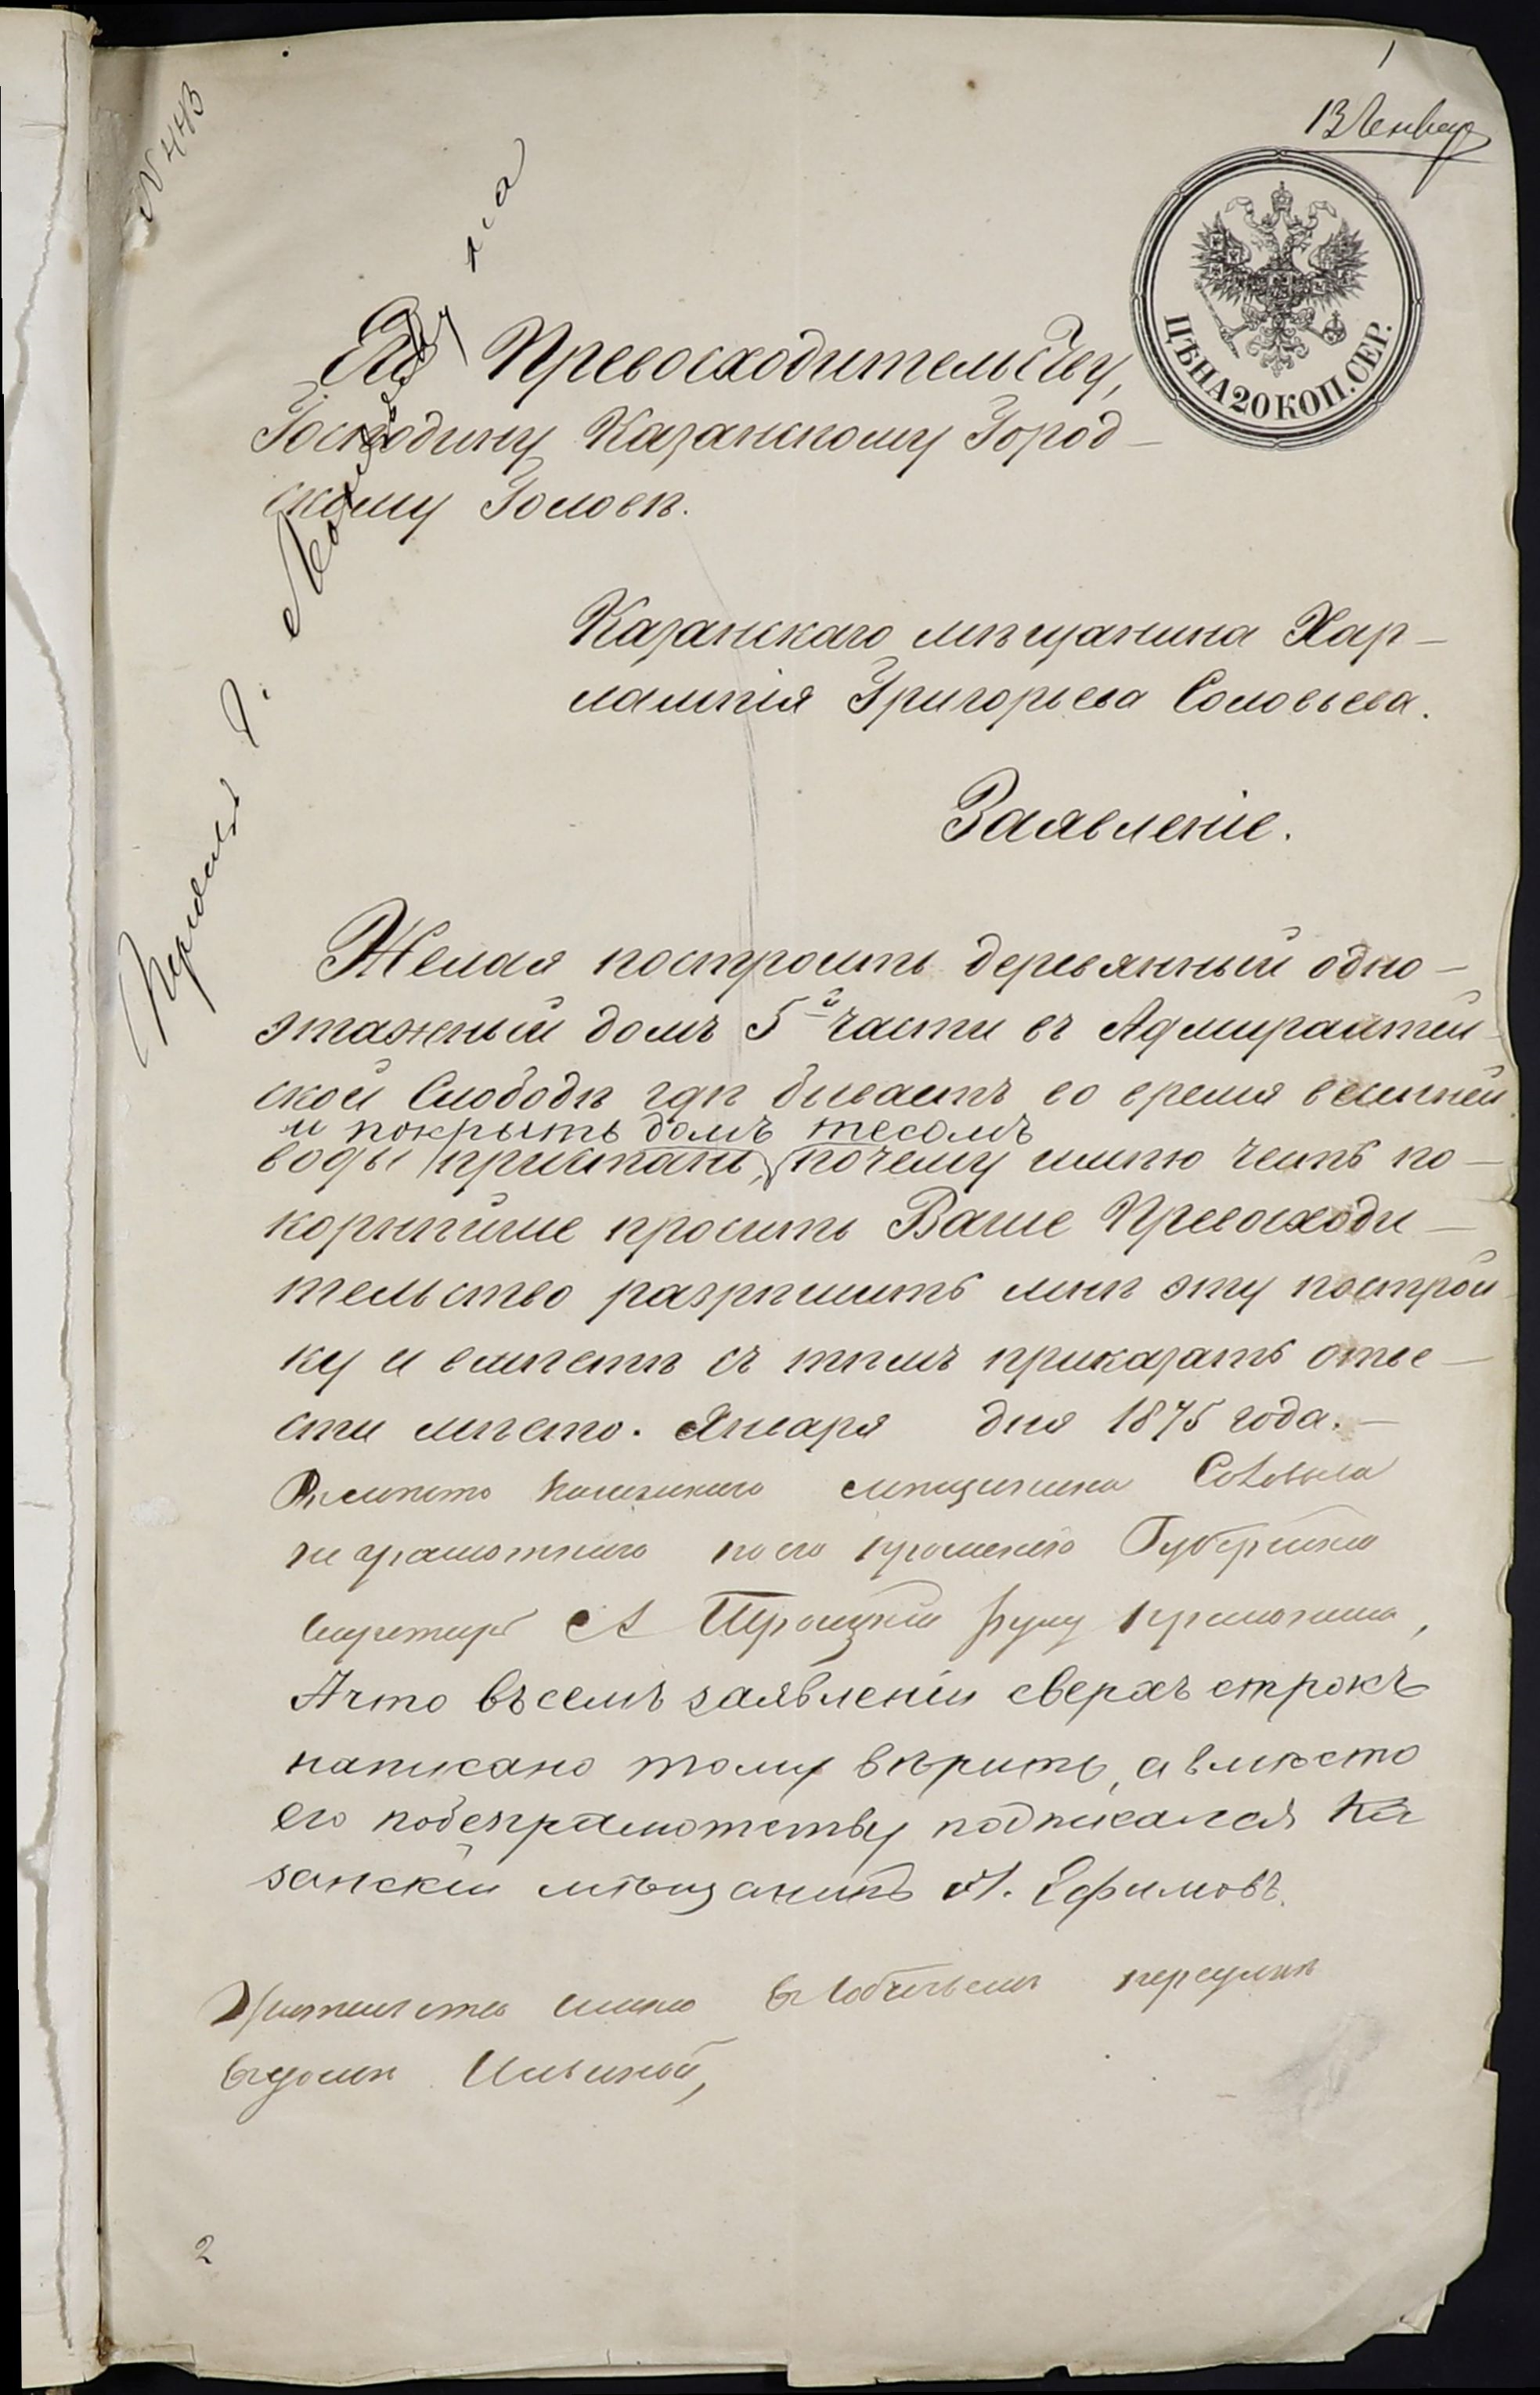 1
13 Генвар
N 443
ЦѢНА 20 КОП. СЕР.
Его Превосходительству,
Господину Казанскому Город-
скому Головѣ.
Казанскаго мѣщанина Хар-
лампія Григорьева Соловьева.
Заявленіе.
Желая построить деревянный одно-
этажный домъ 5й части въ Адмиралтей-
ской Слободѣ гдѣ бываетъ во время вешней
и покрыть домъ тесомъ
воды пристань, почему имѣю честь по-
корнѣйше просить Ваше Превосходи-
тельство разрѣшить мнѣ эту построй-
ку и вмѣстѣ съ тѣмъ приказать отве-
сти мѣсто. Января дня 1875 года.-
Вместо Казанскаго мѣщанина Соловьева
неграмотнаго по его прошенію Губернскій
Секретарь А Троицкій руку приложилъ,
А что въ семъ заявленіи сверхъ строкъ
написано тому вѣрить, а вместо
его по безграмотству подписался Ка
занскій мѣщанинъ А. Ефимовъ.
Жительство имѣю въ переулкѣ
въ домѣ Ильиной,
2